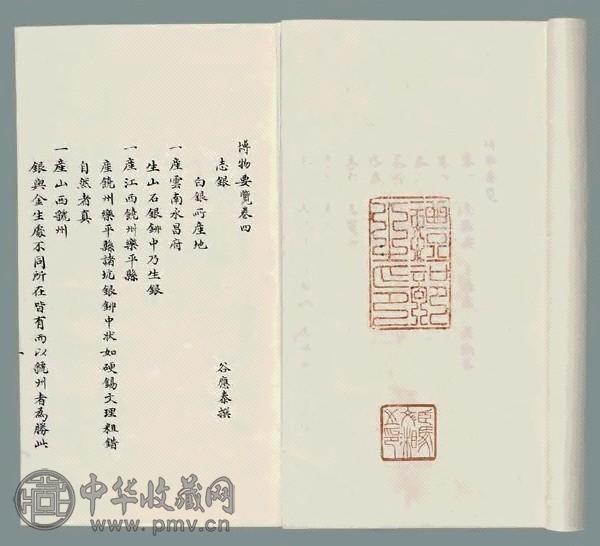 博物要覽卷四
谷應泰撰
志銀
白銀所產地
一產雲南永昌府
生山石銀鉚中乃生銀
一產江西饒州樂平縣
產饒州樂平縣諸坑銀鉚中狀如硬錫文理粗錯
自然者真
一產山西虢州
銀與金生處不同所在皆有而以饒州者為勝此
中华收藏网
www.pmv.cn